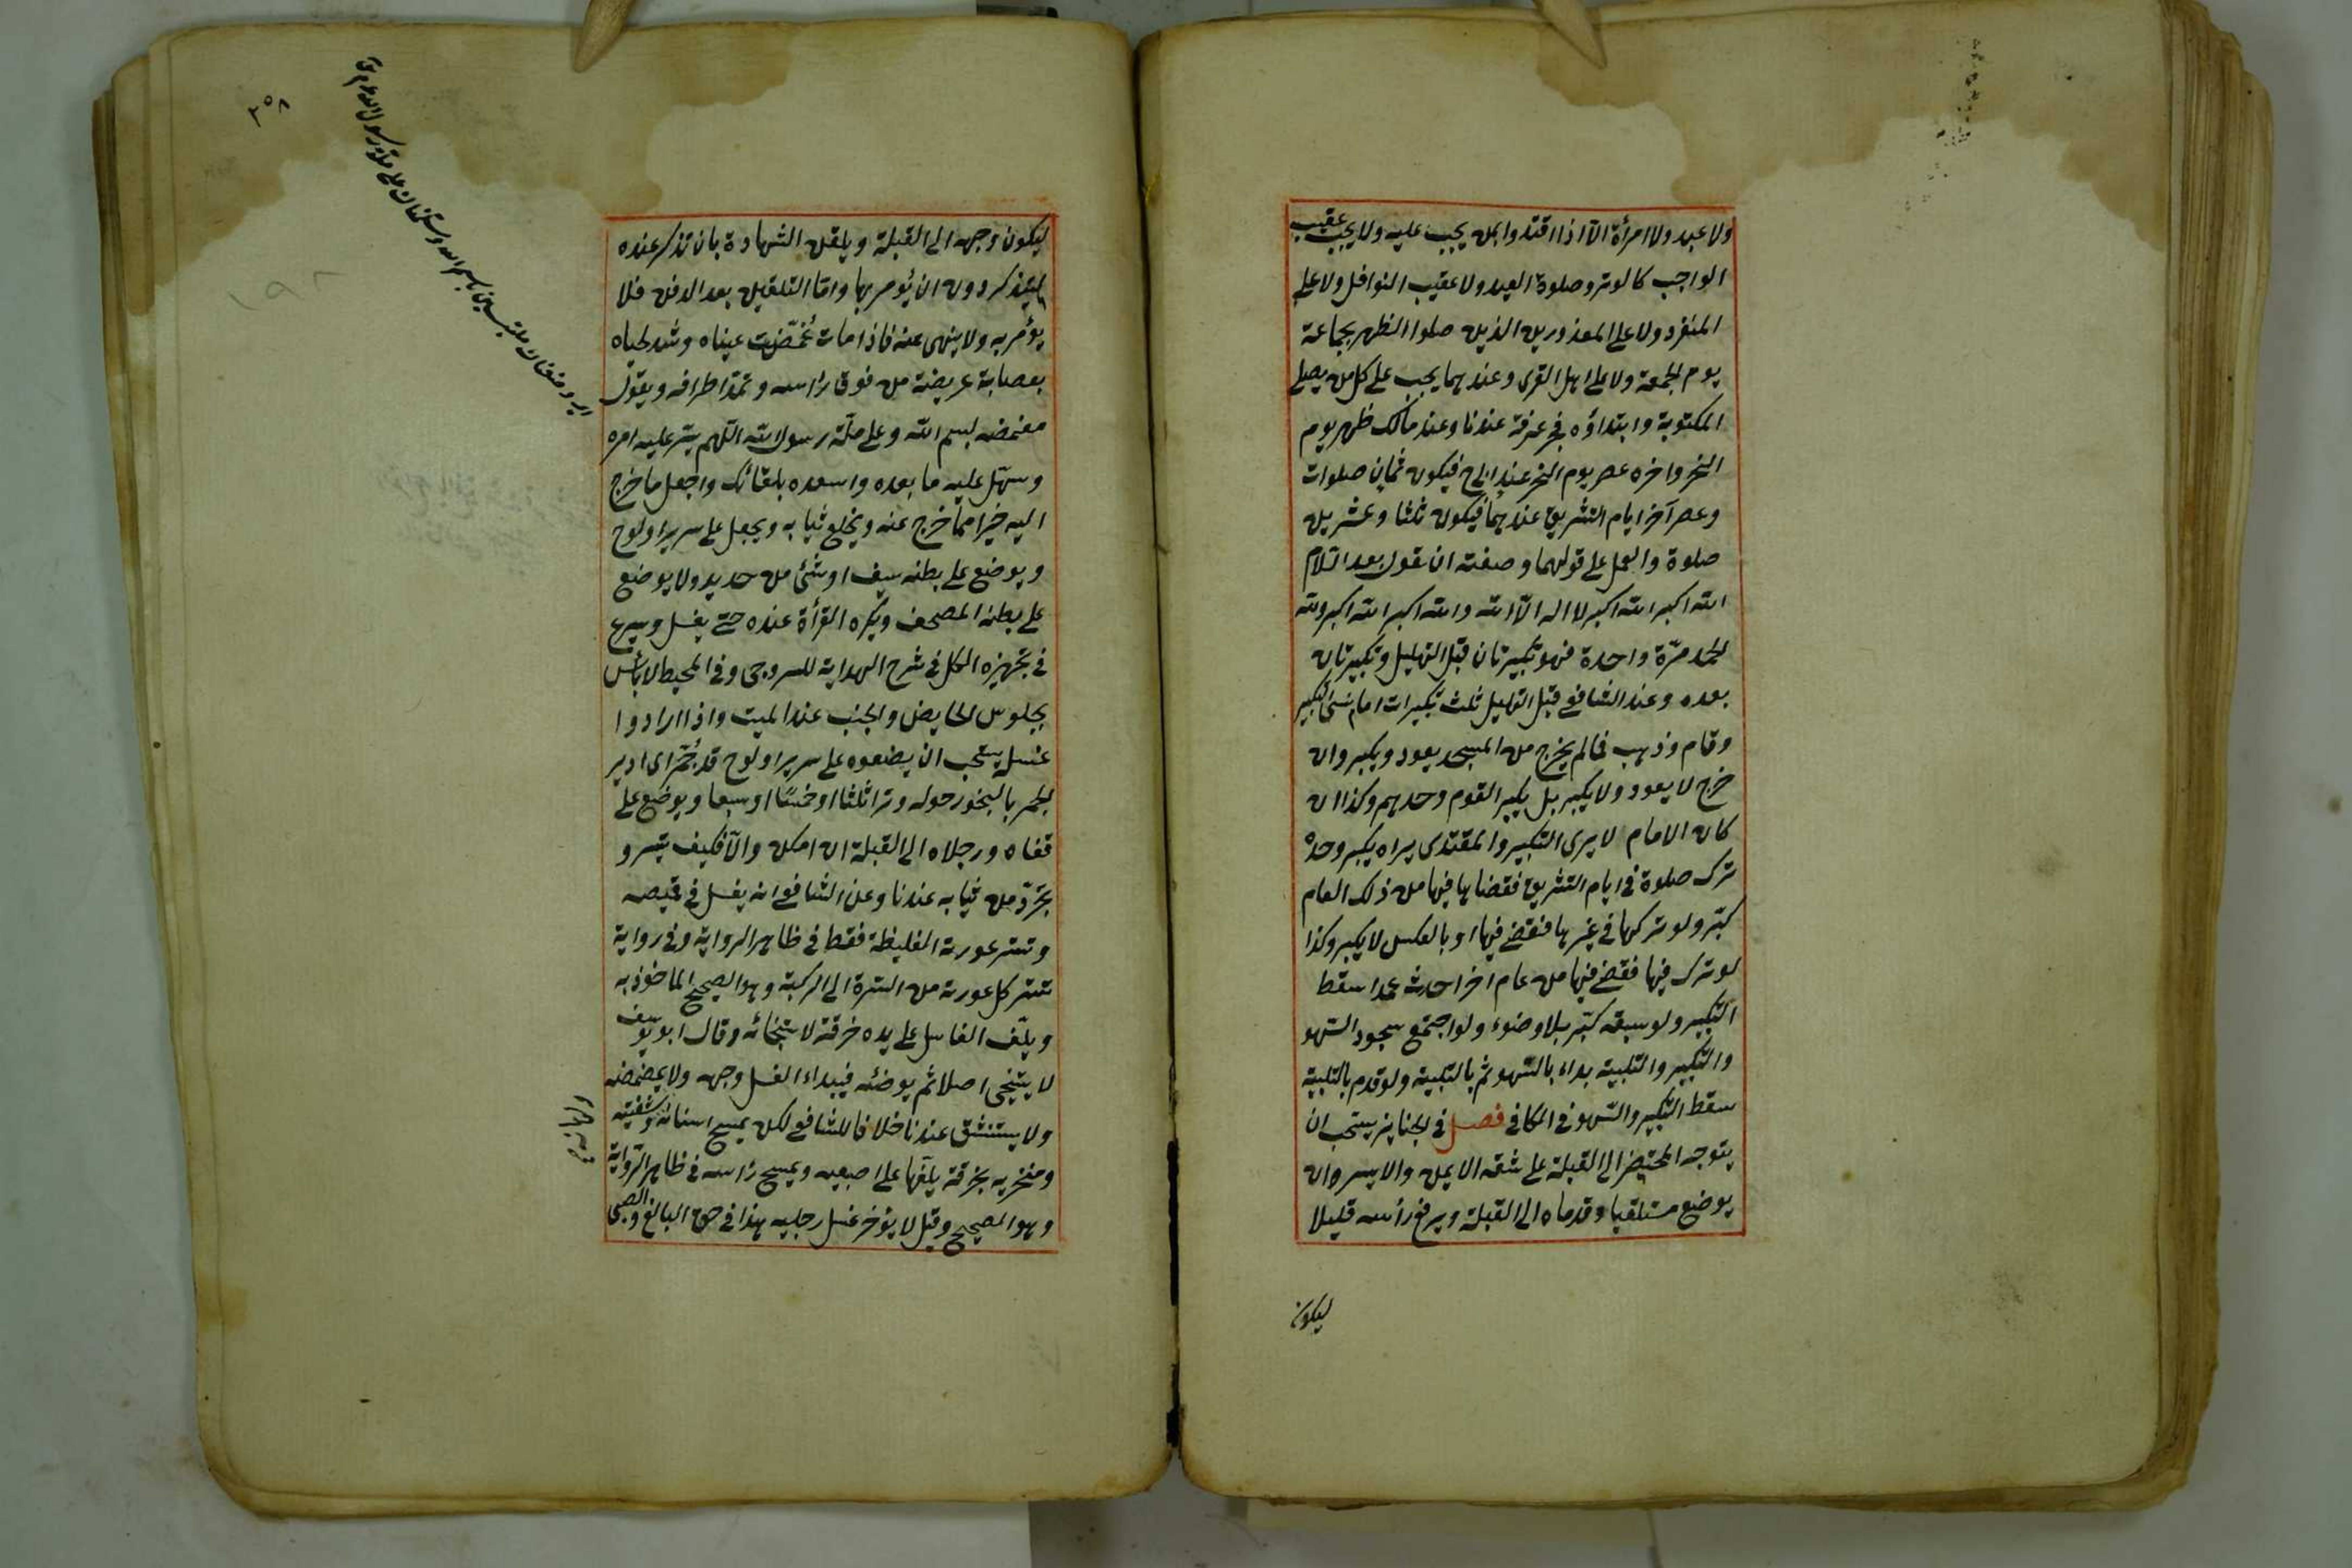 ولا عبد ولا امرأة الّا اذا اقتدوا بمن يجب عليه ولا يجب عقيب
الواجب كالوتر وصلوة العيد ولا عقيب النوافل ولا على
المنفرد ولا على المعذورين الذين صلوا الظهر بجماعة
يوم الجمعة ولا على اهل القرى وعندهما يجب على كل من يصلى
المكتوبة وابتداؤه فجر عرفة عندنا وعند مالك ظهر يوم
النحر واخره عصر يوم النحر عند ابى ح فيكون ثمان صلوات
وعصر آخر ايام التشريق عندهما فيكون ثلثا وعشرين
صلوة والعمل على قولهما وصفته ان تقول بعد السّلام
الله اكبر الله اكبر لا اله الّا الله والله اكبر الله اكبر ولله
الحمد مرّة واحدة فهو تكبيرتان قبل التهليل وتكبيرتان
بعده وعند الشافعى قبل التهليل ثلث تكبيرات امام نسى التكبير
وقام وذهب فما لم يخرج من المسجد يعود ويكبر وان
خرج لا يعود ولا يكبر بل يكبر القوم وحدهم وكذا ان
كان الامام لا يرى التكبير والمقتدى يراه يكبر وحده
ترك صلوة فى ايام التشريق فقضاها فيها من ذلك العام
كبّر ولو تركها فى غيرها فقضى فيها او بالعكس لا يكبر وكذا
لو ترك فيها فقضى فيها من عام اخر احدث عمدا سقط
التكبير ولو سبقه كبّر بلا وضوء ولو اجتمع سجود السّهو
والتكبير والتلبية بداء بالسّهو ثم بالتكبير ولو قدم بالتلبية
سقط التكبير والسّهو فى الكافى فصل فى الجنايز يستحب ان
يتوجه المحتضر الى القبلة على شقه الايمن والايسر وان
يوضع مستلقيا وقدماه الى القبلة ويرفع رأسه قليلا
ليكون
٣٥٨
ليكون وجهه الى القبلة ويلقن الشهادة بان تذكر عنده
ليتذكر دون ان يُؤمر بها وامّا التلقين بعد الدفن فلا
يؤمر به ولا ينهى عنه فاذا مات غُمّضت عيناه وشد لحياه
بعصابة عريضة من فوق رأسه وتمدّ اطرافه ويقول
مغمضه بسم الله وعلى ملّة رسول الله اللهم يسّر عليه امره
وسهّل عليه ما بعده واسعده بلقائك واجعل ما خرج
اليه خيرا مما خرج عنه ويخلع ثيابه ويجعل على سرير او لوح
ويوضع على بطنه سيف او شئ من حديد ولا يوضع
على بطنه المصحف ويكره القرأة عنده حتى يغسل ويسرع
فى تجهيزه الكل فى شرح الهداية للسروجى وفى المحيط لا بأس
بجلوس الحايض والجنب عند الميت واذا ارادوا
غسله يستحب ان يضعوه على سرير او لوح قد جُمّر اى ادير
المجمر بالبخور حوله وترا ثلثا او خمسًا او سبعا ويوضع على
قفاه ورجلاه الى القبلة ان امكن والّا فكيف تيسر و
يجرّد من ثيابه عندنا وعن الشافعى انه يغسل فى قميصه
وتستر عورته الغليظة فقط فى ظاهر الرواية وفى رواية
تستر كل عورته من السّرة الى الركبة وهو الصحيح الماخوذ به
ويلّف الغاسل على يده خرقة لاستنجائه وقال ابو يوسف
لا يستنجى اصلا ثم يوضئه فيبداء الغسل وجهه ولا يمضمضه
ولا يستنشق عندنا خلافا للشافعى لكن يمسح اسنانه وشفتيه
ومنخريه بخرقة يلّفها على اصبعيه ويمسح رأسه فى ظاهر الرّواية
وهو الصحيح وقيل لا يؤخر غسل رجليه هذا فى حق البالغ والصبى